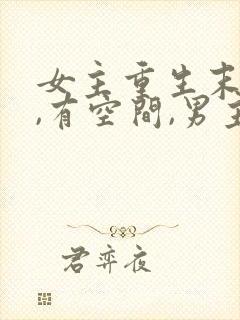 女主重生末
,有空間,男主
君弈夜